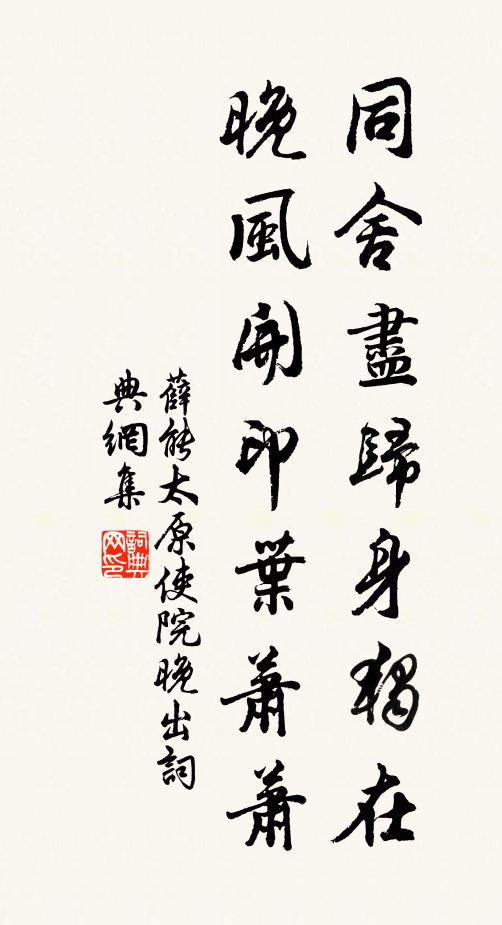 同舍盡歸身獨在
晚風開印葉蕭蕭
薛能太原使院晚出詞
典網集
詞典网印